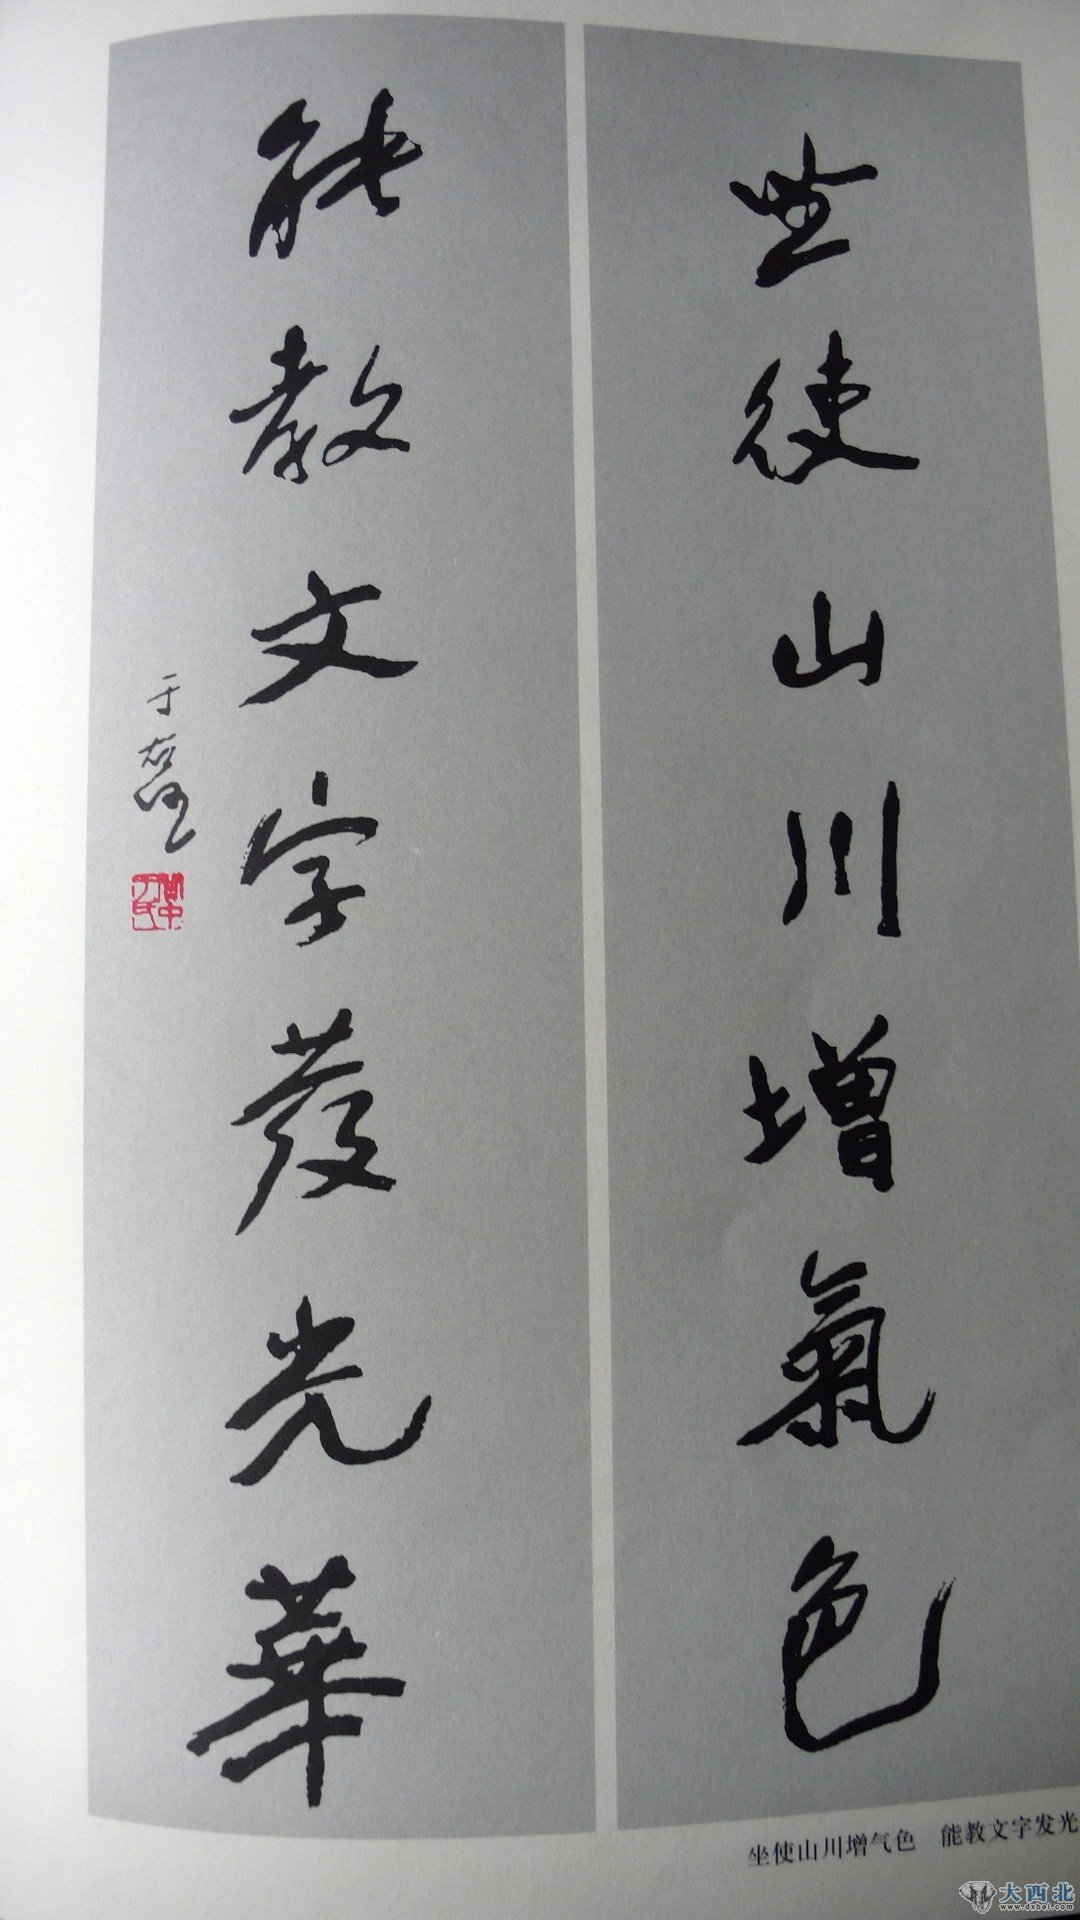 坐使山川增氣色
能教文字發光華
于右任
坐使山川增气色　能教文字发光
大西北
www.dxbei.com